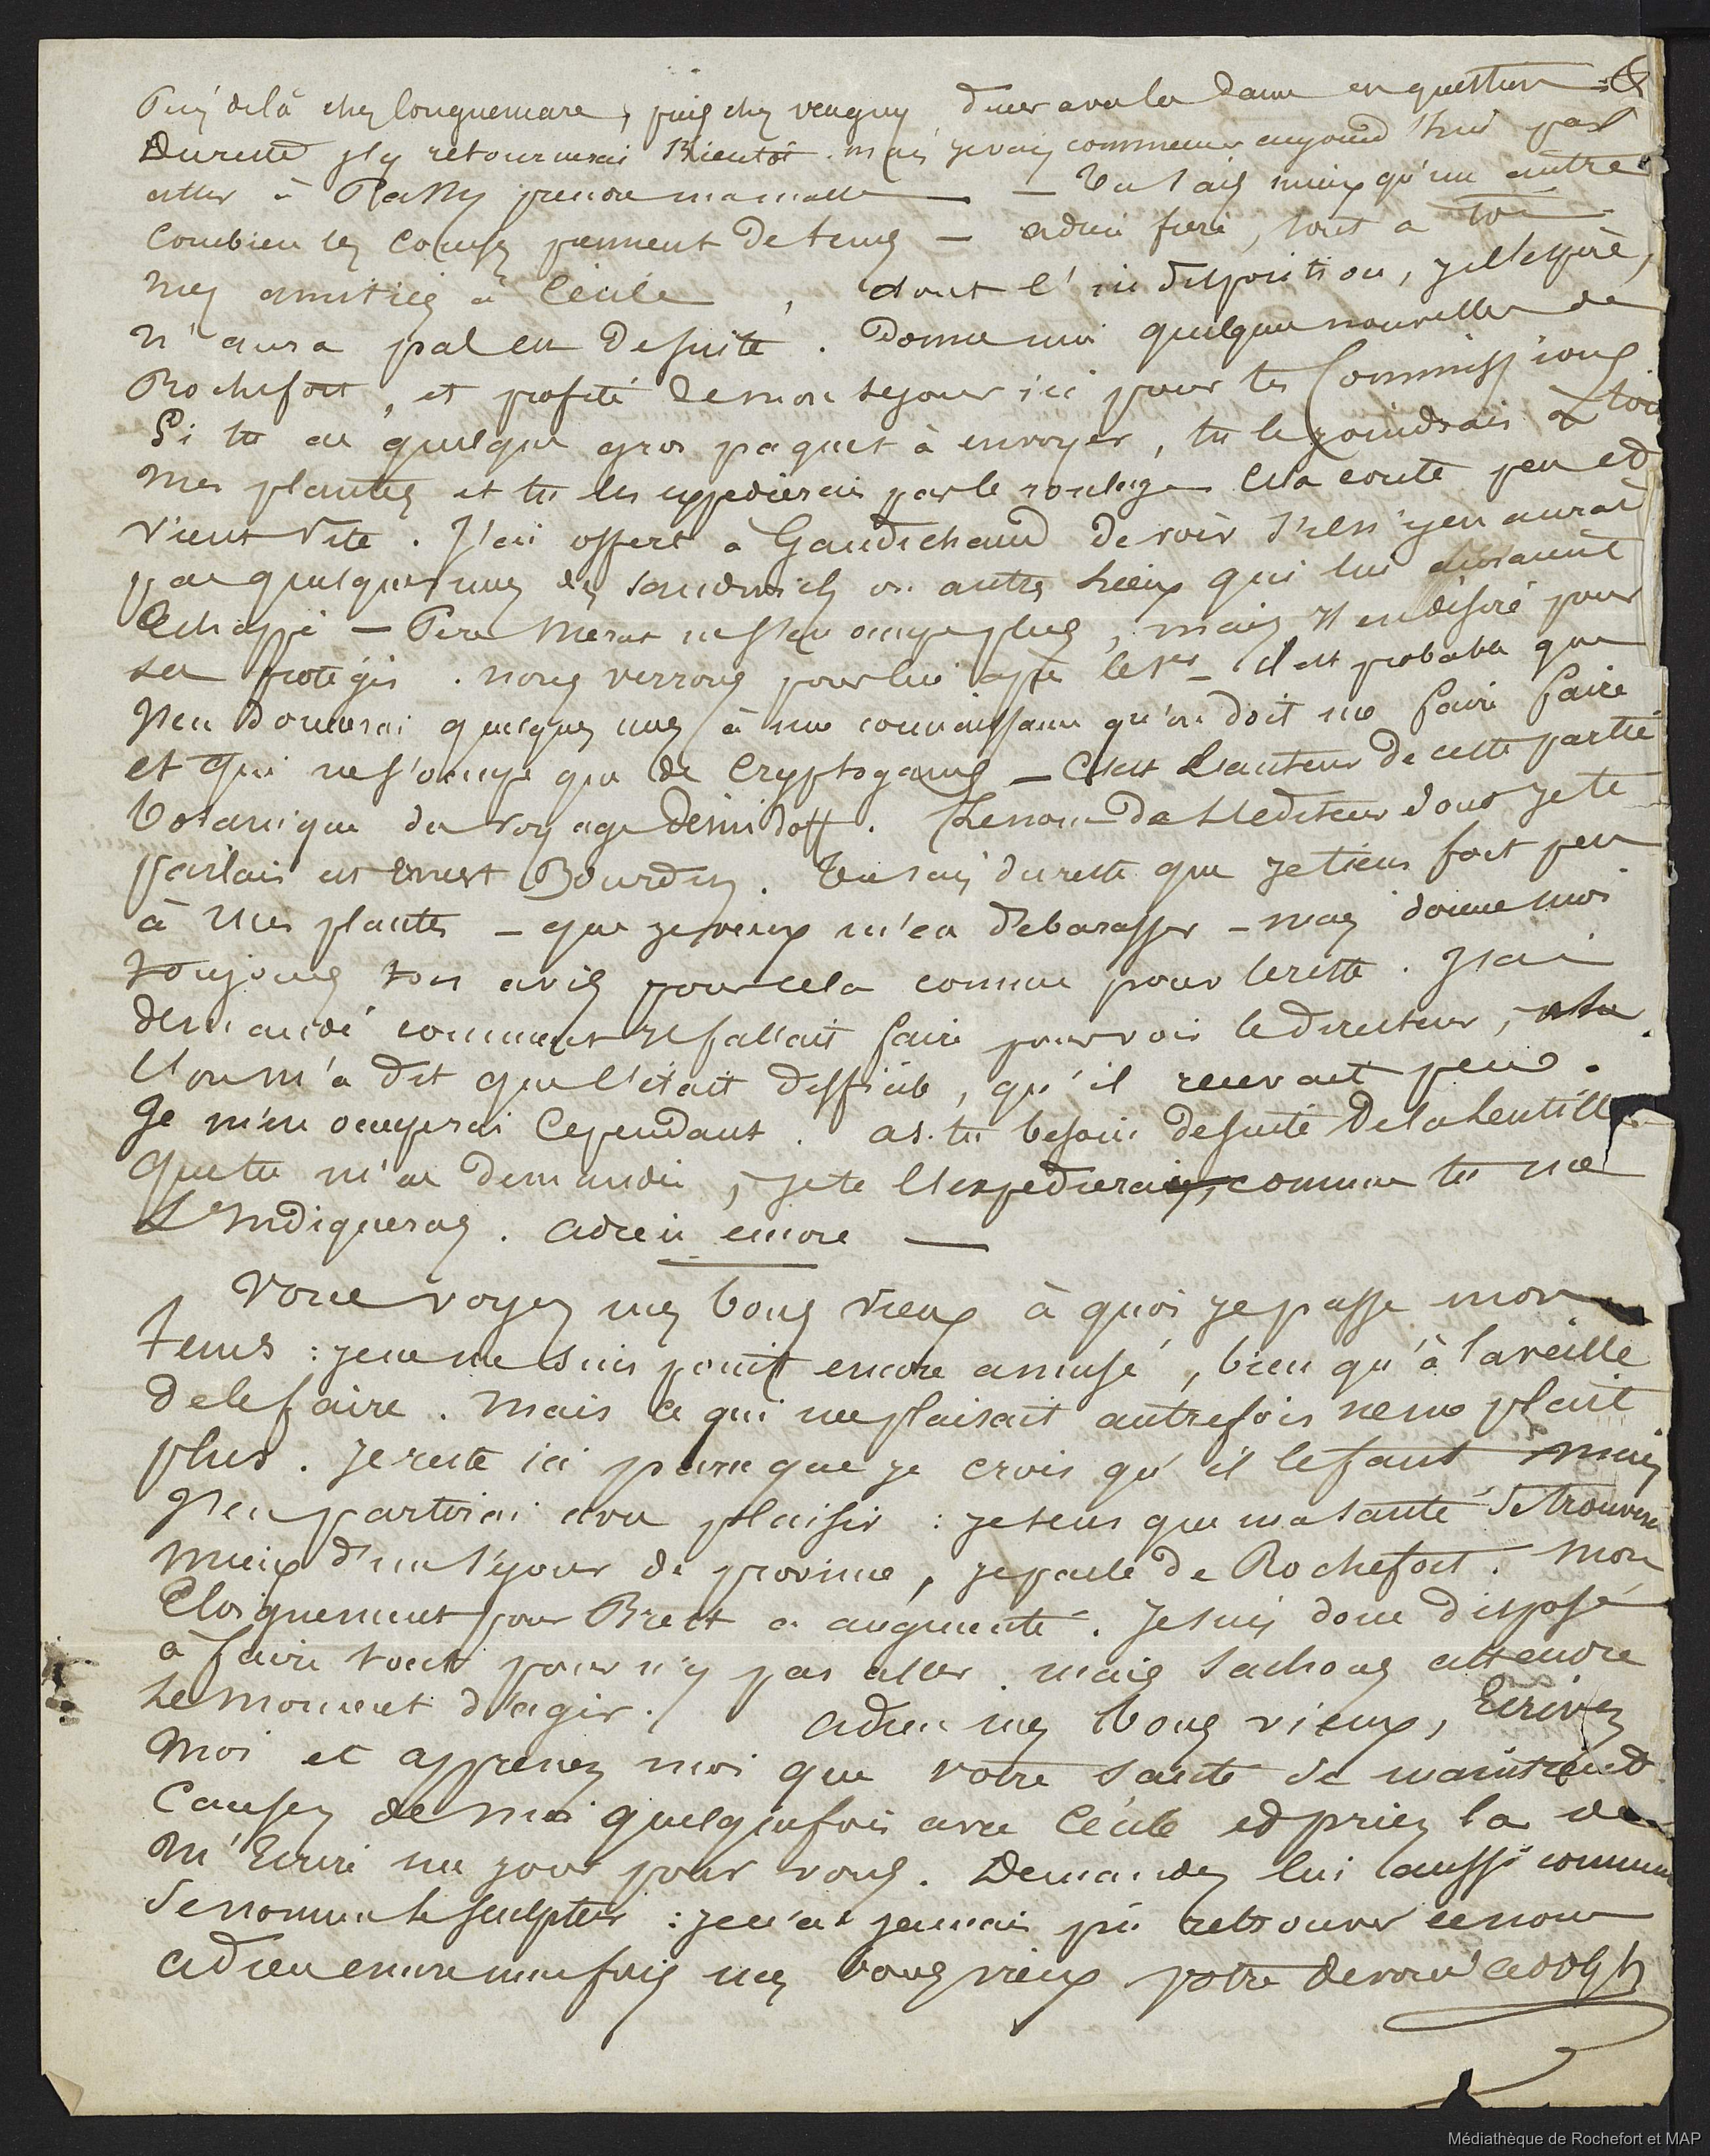 Puis delà chez longuemare, puis chez veugny diner avec la dame en question &
Dureste j'y retournerai Bientôt. mais je vais commencer aujourd'hui par
aller à Passy prendre ma malle — tu sais mieux qu'un autre
Combien les courses prennent de tems — adieu frère, tout à toi
mes amitiés à Cécile, dont l'indisposition, je l'espère,
n'aura pas eu de suite. Donne moi quelques nouvelles de
Rochefort, et profite de mon sejour ici pour tes Commissions
Si tu as quelque gros paquet à envoyer, tu le joindrais à
mes plantes et tu les expedierais par le roulage Cela coute peu et
vient vite. J'ai offert à Gaudichaud de voir s'il n'y en aurait
pas quelques unes des sandwich ou autres lieux qui lui auraient
Echappé — Pere Merat ne s'en occupe plus, mais il en désire pour
ses protégés. nous verrons pour lui après les 1ers — il est probable que
j'en donnerai quelques unes à une connaissance qu'on doit me faire faire
et qui ne s'occupe que de Cryptogames — C'est L'auteur de cette partie
botanique du voyage Démidoff. Le nom de L'editeur dont je te
parlais est Ernest Bourdin. Tu sais du reste que je tiens fort peu
à mes plantes — que je veux m'en débarasser — mais donne moi
toujours ton avis pour cela comme pour le reste. J'ai
demandé comment il fallait faire pour voir le directeur,
l'on m'a dit que c'était difficile, qu'il recevait peu.
Je m'en occuperai Cependant. as-tu besoin de suite De la Lentille
que tu m'as demandée, je te l'expedierais, comme tu me
L'indiqueras. adieu encore —
Vous voyez mes bons vieux à quoi je passe mon
tems : je ne me suis point encore amusé, bien qu'à la veille
de le faire. Mais ce qui me plaisait autrefois ne me plait
plus. Je reste ici parce que je crois qu'il le faut mais
j'en partirai avec plaisir : je sens que ma santé se trouvera
mieux d'un séjour de province, je parle de Rochefort. Mon
Eloignement pour Brest a augmenté. Je suis donc disposé
à faire tout pour n'y pas aller. mais sachons attendre
Le moment d'agir. adieu mes bons vieux, Ecrivez
Moi et apprenez moi que votre santé se maintient
Causez de moi quelquefois avec Cécile et priez la de
M'Ecrire un jour pour vous. Demandez lui aussi comment
se nomme le sculpteur : je n'ai jamais pu retrouver ce nom
adieu encore une fois mes bons vieux votre devoué adolph
Médiathèque de Rochefort et MAP